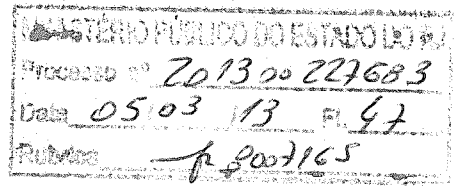 MINISTÉRIO PÚBLICO DO ESTADO DO RJ
Processo nº 201300227683
Data 05/03/13 Fl. 47
Rubrica 8007165